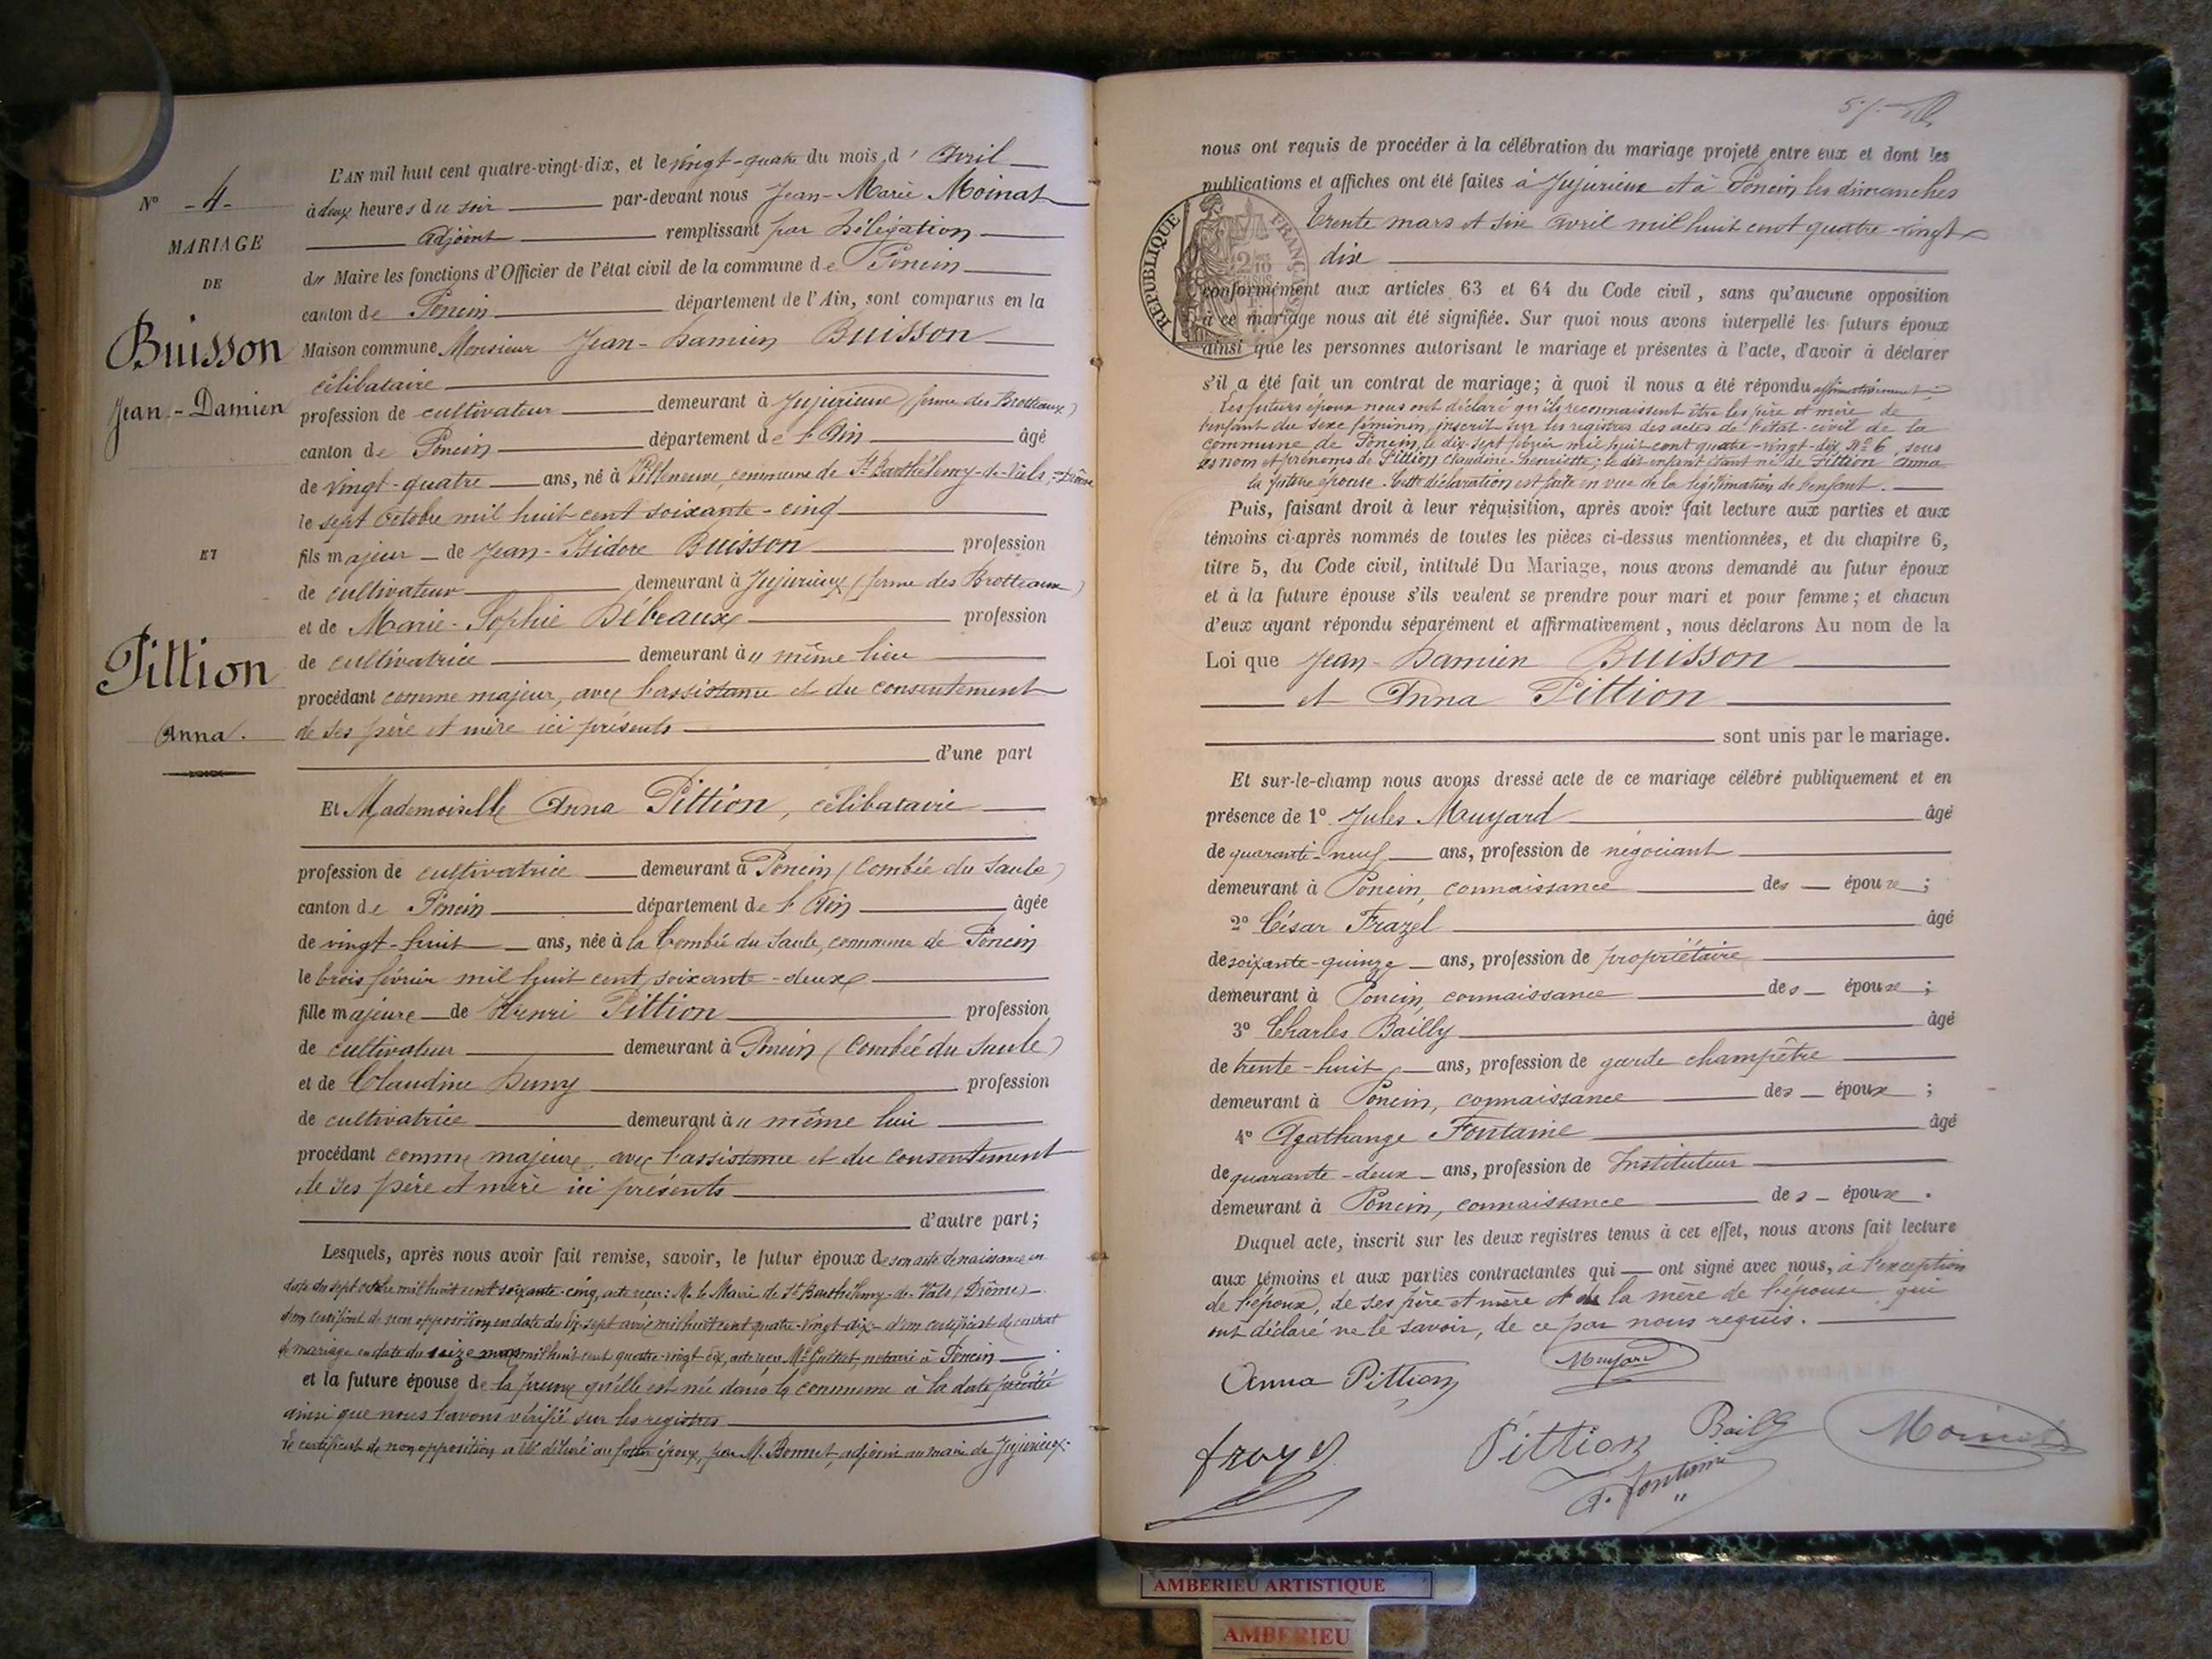 N° -4-
MARIAGE
DE
Buisson
Jean-Damien
ET
Pittion
Anna.
L'AN mil huit cent quatre-vingt-dix, et le vingt-quatre du mois d' Avril
à deux heures du soir par-devant nous Jean-Marie Moinat
adjoint remplissant par délégation
du Maire les fonctions d'Officier de l'état civil de la commune de Poncin
canton de Poncin département de l'Ain, sont comparus en la
Maison commune Monsieur Jean-Damien Buisson
célibataire
profession de cultivateur demeurant à Jujurieux (ferme des Brotteaux)
canton de Poncin département de l'Ain âgé
de vingt-quatre ans, né à Villeneuve, commune de St Barthélemy-de-Vals, Drôme
le sept Octobre mil huit cent soixante-cinq
fils majeur de Jean-Isidore Buisson profession
de cultivateur demeurant à Jujurieux (ferme des Brotteaux)
et de Marie-Sophie Débeaux profession
de cultivatrice demeurant à " même lieu
procédant comme majeur, avec l'assistance et du consentement
de ses père et mère ici présents
d'une part
Et Mademoiselle Anna Pittion, célibataire
profession de cultivatrice demeurant à Poncin (Combée du Saule)
canton de Poncin département de l'Ain âgée
de vingt-huit ans, née à la Combée du Saule, commune de Poncin
le trois février mil huit cent soixante-deux
fille majeure de Henri Pittion profession
de cultivateur demeurant à Poncin (Combée du Saule)
et de Claudine profession
de cultivatrice demeurant à " même lieu
procédant comme majeure, avec l'assistance et du consentement
de ses père et mère ici présents
d'autre part;
Lesquels, après nous avoir fait remise, savoir, le futur époux de son acte de naissance en
date du sept octobre mil huit cent soixante-cinq, acte reçu: M. le Maire de St Barthélemy-de-Vals (Drôme)
d'un certificat de non opposition en date du dix-sept avril mil huit cent quatre-vingt-dix - d'un certificat de contrat
de mariage en date du seize mars mil huit cent quatre-vingt dix, acte reçu Me notaire à Poncin
et la future épouse de la preuve qu'elle est née dans la commune à la date précitée
ainsi que nous l'avons vérifié sur les registres
Le certificat de non opposition a été délivré au futur époux, par M. Bonnet, adjoint au maire de Jujurieux.
nous ont requis de procéder à la célébration du mariage projeté entre eux et dont les
publications et affiches ont été faites à Jujurieux et à Poncin les dimanches
trente mars et six avril mil huit cent quatre-vingt-
dix
REPUBLIQUE FRANÇAISE
conformément aux articles 63 et 64 du Code civil, sans qu'aucune opposition
à ce mariage nous ait été signifiée. Sur quoi nous avons interpellé les futurs époux
ainsi que les personnes autorisant le mariage et présentes à l'acte, d'avoir à déclarer
s'il a été fait un contrat de mariage; à quoi il nous a été répondu affirmativement.
Les futurs époux nous ont déclaré qu'ils reconnaissent être les père et mère de
l'enfant du sexe féminin, inscrit sur les registres des actes de l'état-civil de la
commune de Poncin, le dix-sept février mil huit cent quatre-vingt-dix N° 6, sous
les nom et prénoms de Pittion Claudine-Henriette; le dit enfant étant né de Pittion Anna
la future épouse. Cette déclaration est faite en vue de la légitimation de l'enfant.
Puis, faisant droit à leur réquisition, après avoir fait lecture aux parties et aux
témoins ci-après nommés de toutes les pièces ci-dessus mentionnées, et du chapitre 6,
titre 5, du Code civil, intitulé Du Mariage, nous avons demandé au futur époux
et à la future épouse s'ils veulent se prendre pour mari et pour femme; et chacun
d'eux ayant répondu séparément et affirmativement, nous déclarons Au nom de la
Loi que Jean-Damien Buisson
et Anna Pittion
sont unis par le mariage.
Et sur-le-champ nous avons dressé acte de ce mariage célébré publiquement et en
présence de 1° Jules Muyard âgé
de quarante-neuf ans, profession de négociant
demeurant à Poncin, connaissance des époux;
2° César Frazel âgé
de soixante-quinze ans, profession de propriétaire
demeurant à Poncin, connaissance des époux;
3° Charles Bailly âgé
de trente-huit ans, profession de garde champêtre
demeurant à Poncin, connaissance des époux;
4° Agathange Fontaine âgé
de quarante-deux ans, profession de Instituteur
demeurant à Poncin, connaissance des époux.
Duquel acte, inscrit sur les deux registres tenus à cet effet, nous avons fait lecture
aux témoins et aux parties contractantes qui ont signé avec nous, à l'exception
de l'époux, de ses père et mère et de la mère de l'épouse qui
ont déclaré ne le savoir, de ce par nous requis.
Anna Pittion Muyard
Pittion Bailly Moinat
A. Fontaine
AMBERIEU ARTISTIQUE
AMBERIEU